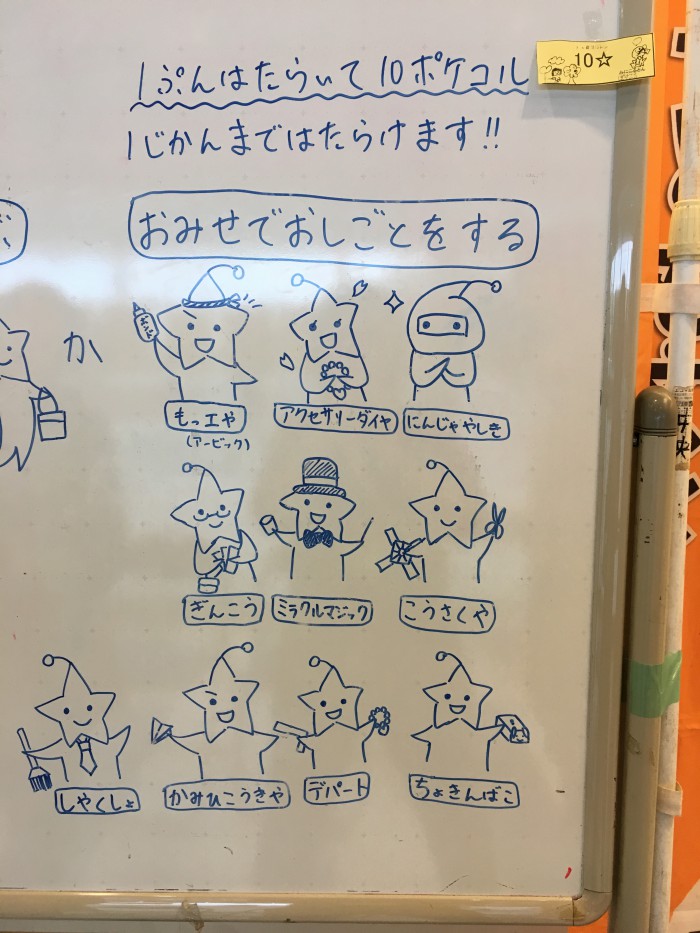 1ぷんはたらいて10ポケコル
10☆
1じかんまではたらけます!!
おみせでおしごとをする
か
もっ工や
(アービック)
アクセサリーダイヤ
にんじゃやしき
ぎんこう
ミラクルマジック
こうさくや
しゃくしょ
かみひこうきや
デパート
ちょきんばこ